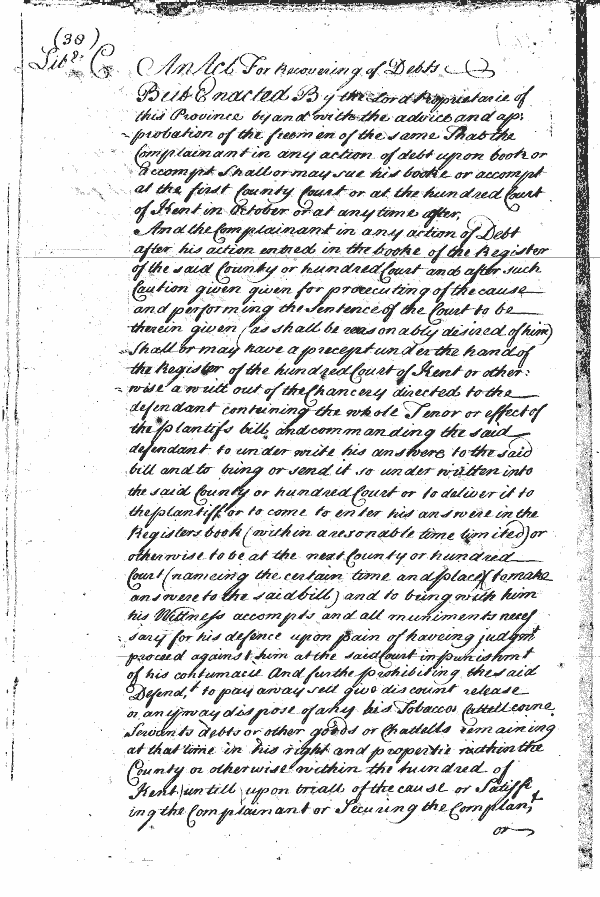 (38)
Lib: C
An Act For Recovering of Debts
Be it Enacted By the Lord Proprietarie of
this Province by and with the advice and ap:
probation of the freemen of the same That the
Complainant in any action of debt upon booke or
accompt Shall or may sue his booke or accompt
at the first County Court or at the hundred Court
of Kent in October or at any time after,
And the Complainant in any action of Debt
after his action entred in the booke of the Register
of the said County or hundred Court and after such
Caution given given for prosecuting of the cause
and performing the Sentence of the Court to be
therein given (as shall be reasonably desired of him)
Shall or may have a precept under the hand of
the Register of the hundred Court of Kent or other:
wise a writt out of the Chancery directed to the
defendant conteining the whole Tenor or effect of
the plantifs bill and commanding the said
defendant to under write his answere to the said
bill and to bring or send it so under written into
the said County or hundred Court or to deliver it to
the plantiff or to come to enter his answere in the
Registers book (within a resonable time limited) or
otherwise to be at the next County or hundred
Court (nameing the certain time and place) (to make
answere to the said bill) and to bring with him
his Wittness accompts and all muniments neces
sary for his defence upon pain of haveing judgmt
proceed against him at the said Court in punishmt
of his contumacie And furthe prohibiting the said
Defend,t to pay away sell give discount release
or anyway dispose of any his Tobaccos Cattell corne
Servants debts or other goods or Chattells remaining
at that time in his right and propertie within the
County or otherwise within the hundred of
Kent) untill upon triall of the cause or Satisfi
ing the Complainant or Securing the Complan,t
or